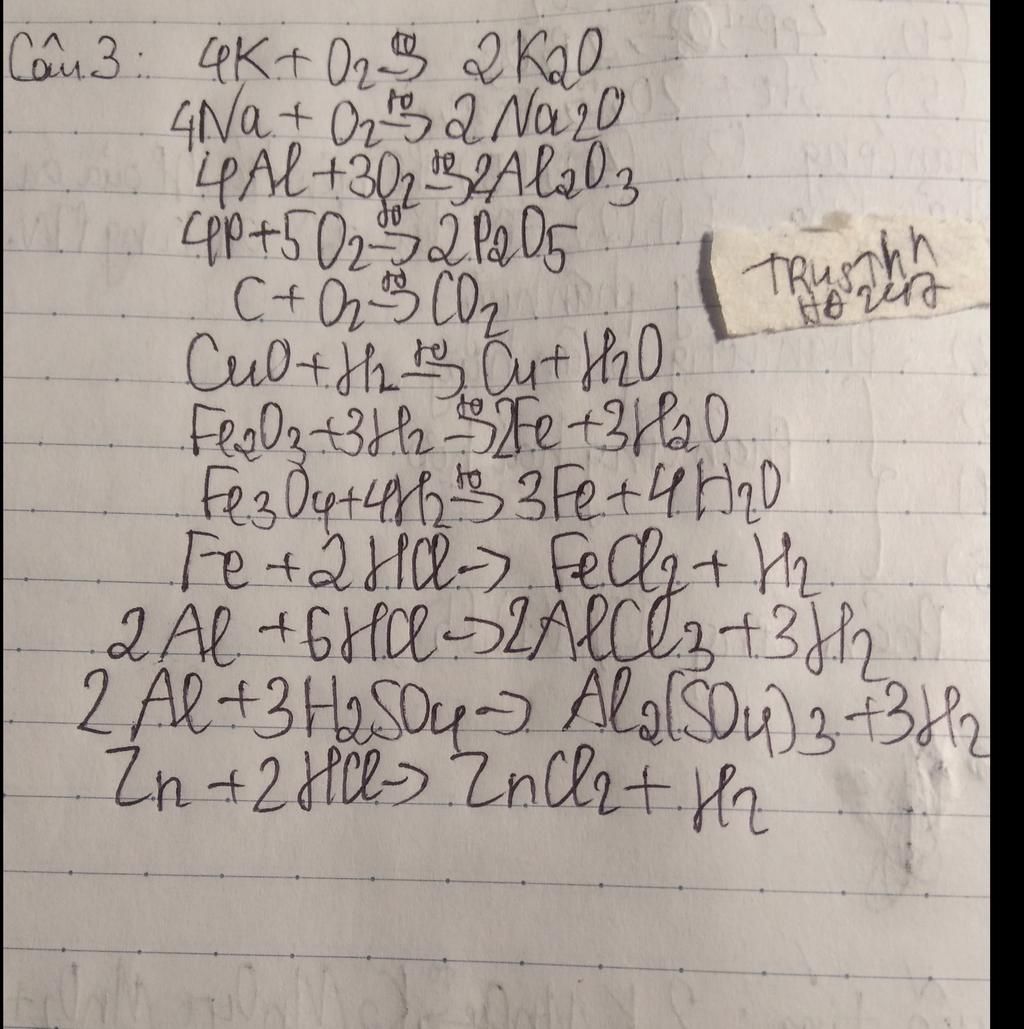 Câu 3: 4K + O2 t°→ 2K2O
4Na + O2 t°→ 2Na2O
4Al + 3O2 t°→ 2Al2O3
4P + 5O2 t°→ 2P2O5
C + O2 t°→ CO2
CuO + H2 t°→ Cu + H2O
Fe2O3 + 3H2 t°→ 2Fe + 3H2O
Fe3O4 + 4H2 t°→ 3Fe + 4H2O
Fe + 2HCl → FeCl2 + H2
2Al + 6HCl → 2AlCl3 + 3H2
2Al + 3H2SO4 → Al2(SO4)3 + 3H2
Zn + 2HCl → ZnCl2 + H2